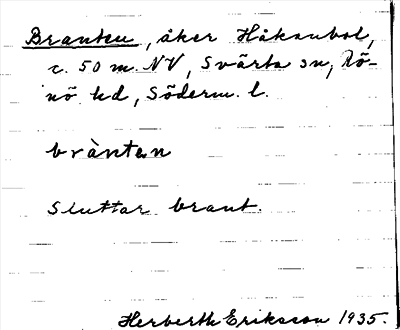 Branten, åker Håkanbol,
c. 50 m. NV, Svärta sn, Rö-
nö hd, Söderm. l.
bràntǝn
Sluttar brant.
Herberth Eriksson 1935.